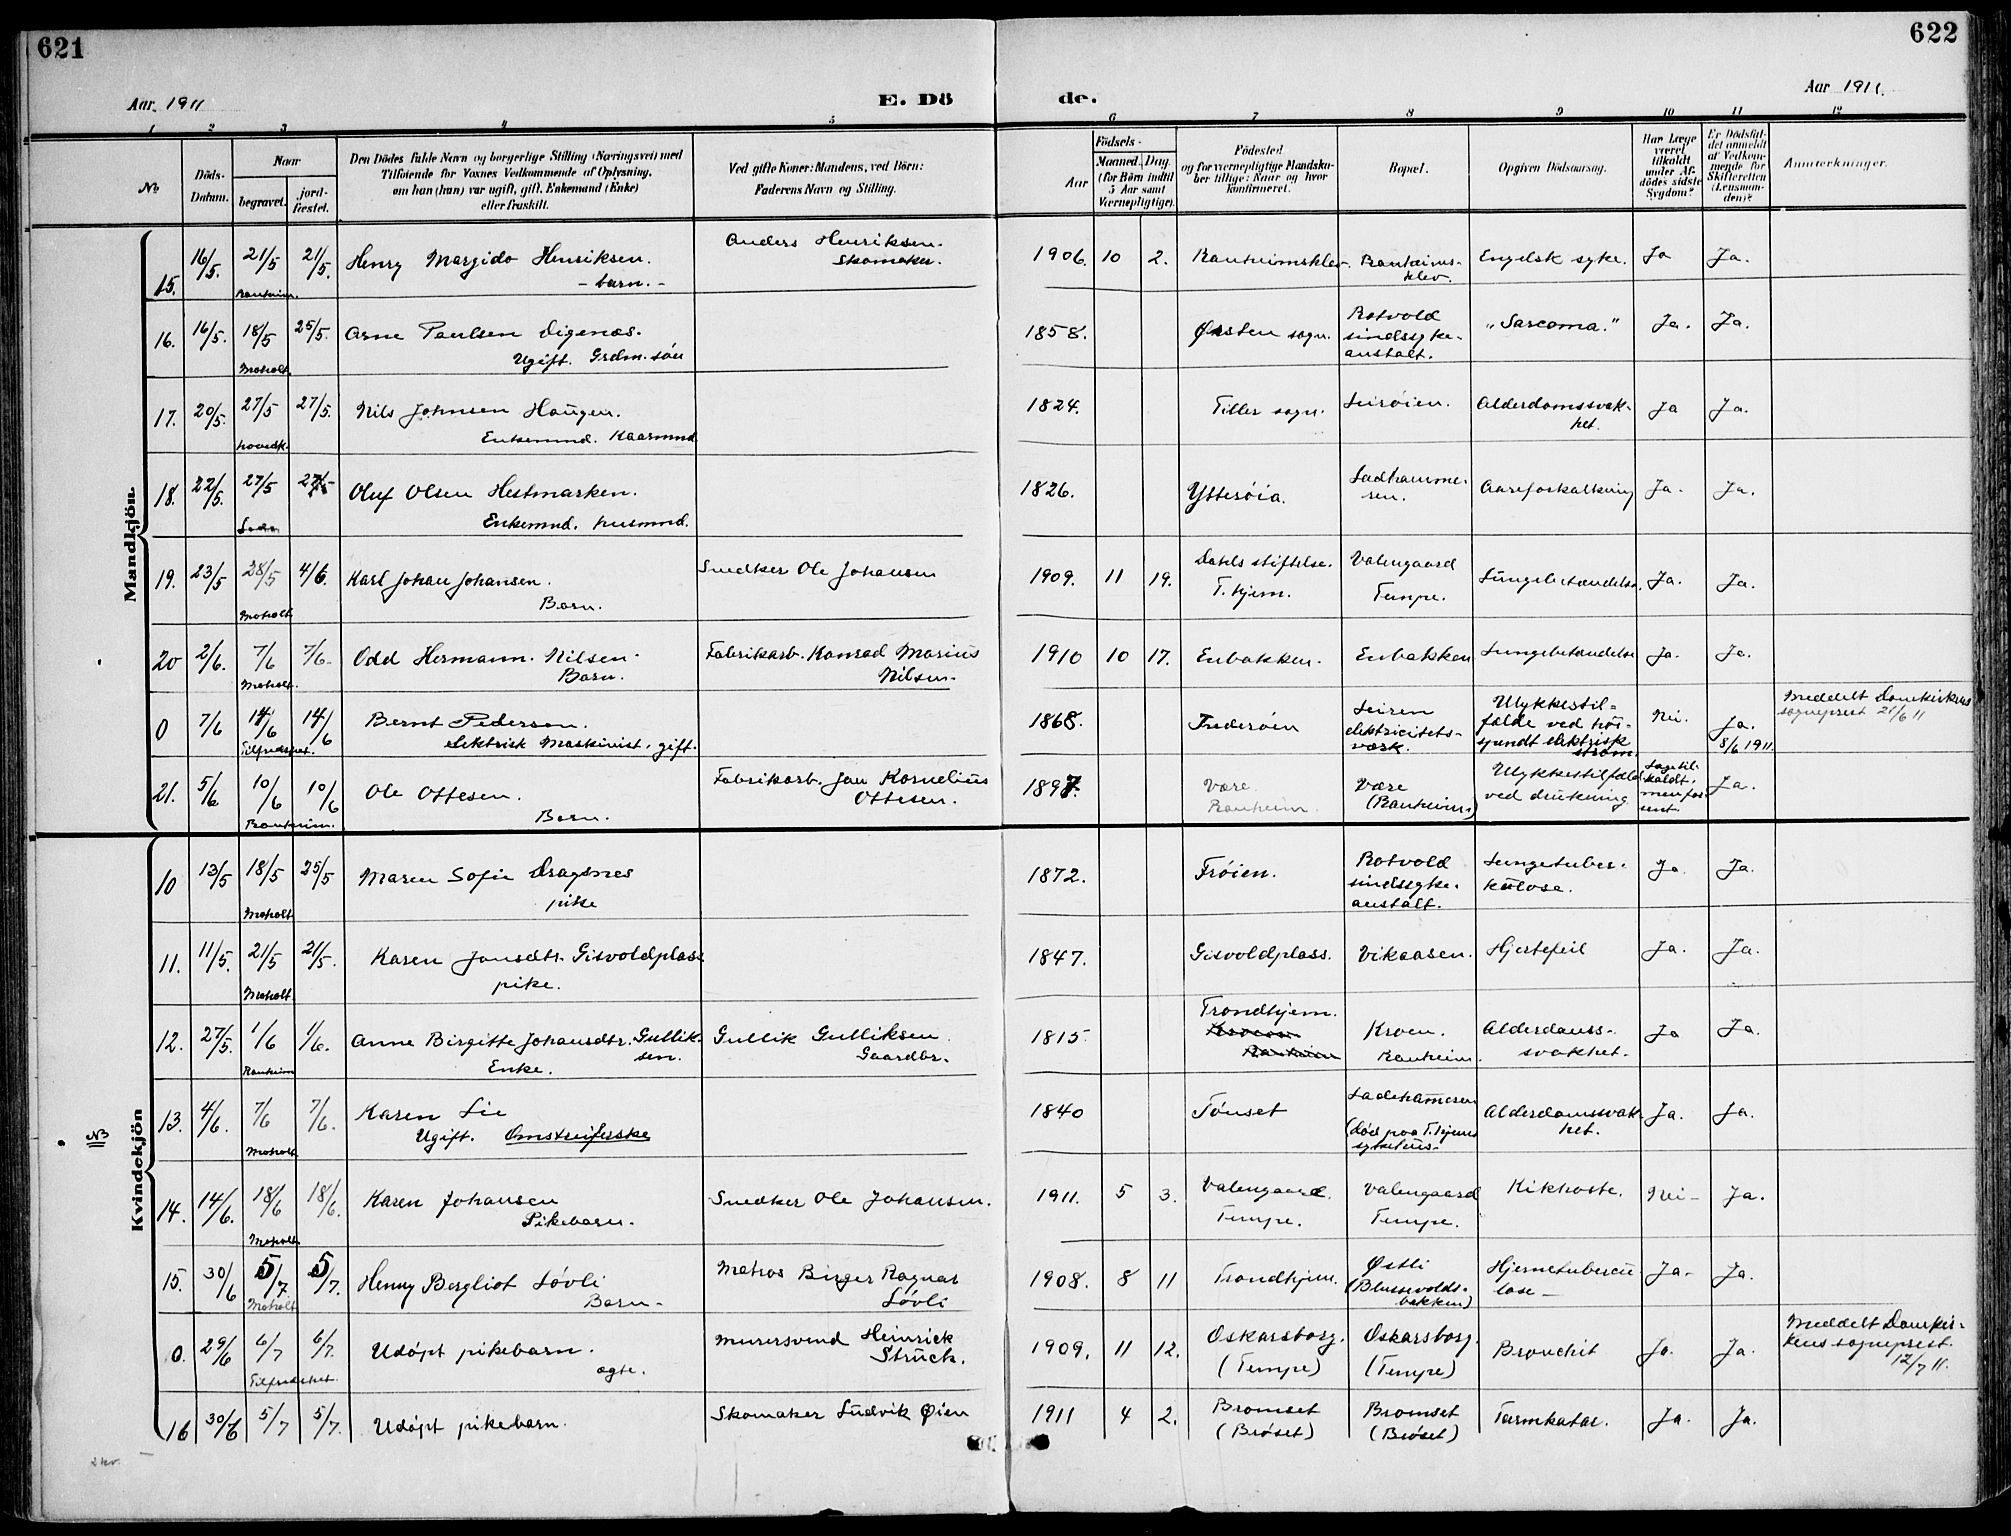 621
622
Aar 1911
E. Dö
de.
Aar 1911.
1 2 3 4 5 6 7 8 9 10 11 12
No
Döds-Datum.
Naar
begravet.
jord-fæstet.
Den Dödes fulde Navn og borgerlige Stilling (Næringsvei) med
Tilföiende for Voxnes Vedkommende af Oplysning,
om han (hun) var ugift, gift, Enkemand (Enke)
eller fraskilt.
Ved gifte Koner: Mandens, ved Börn:
Faderens Navn og Stilling.
Födsels-
Aar
Maaned. Dag.
(for Börn indtil
5 Aar samt
Værnepligtige).
Födested
og for værnepligtige Mandska-
ber tillige: Naar og hvor
konfirmeret.
Bopæl.
Opgiven Dödsaarsag.
Har Læge
været
tilkaldt
under Af-
dödes sidste
Sygdom?
Er Dödsfal-
det anmeldt
af Vedkom-
mende for
Skifteretten
(Lensman-
den)?
Anmerkninger.
Mandkjön.
15. 16/5. 21/5 21/5. Henry Margido Henriksen. Anders Henriksen. 1906. 10 2. Ranheimsklev. Ranheims- Engelsk syke. Ja Ja.
Ranheim. - barn. - Skomaker. klev.
16. 16/5. 18/5 25/5. Arne Paulsen Digenæs. 1858. Ørsten sogn. Rotvold "Sarcoma." Ja. Ja.
Moholt. Ugift. Grdm. søn sindssyke-
anstalt.
17. 20/5. 27/5 27/5. Nils Johnsen Haugen. 1824. Tiller sogn. Leirøien. Alderdomssvak- Ja Ja.
hovedk. Enkemnd. Kaarmnd. het.
18. 22/5. 27/5 27/5 Oluf Olsen Hestmarken. 1826. Ytterøia. Ladhamme- Aareforkalkning Ja. Ja.
Lade Enkemnd. husmnd. ren.
19. 23/5 28/5 4/6. Karl Johan Johansen. Snedker Ole Johansen 1909. 11 19. Dahls stiftelse. Valengaard Lungebetændelse. Ja. Ja.
Moholt Barn. T.hjem. Tempe.
20 2/6. 7/6 7/6 Odd Hermann. Nilsen. Fabrikarb. Konrad Marius 1910 10 17. Enbakken. Enbakken Lungebetændelse Ja. Ja.
Moholt. Barn. Nilsen.
0 7/6 14/6 14/6 Bernt Pedersen. 1868. Inderøien Leiren Ulykkestil- Nei. Ja. Meddelt Domkirkens
Tilfredshet. elektrisk Maskinist, gift. elektricitets- fælde ved høi- 8/6 1911. sogneprest 21/6 11
værk. spændt elektrisk
strøm.
21. 5/6 10/6 10/6 Ole Ottesen. Fabrikarb. Jan Kornelius 1897. Være. Være Ulykkestilfæld Læge til- Ja.
Ranheim. Barn. Ottesen. Ranheim. (Ranheim) ved drukning kaldt,
men for
sent
Kvindekjön
10 13/5 18/5 25/5 Maren Sofie Dragsnes 1872. Frøien. Rotvold Lungetuber- Ja. Ja.
Moholt pike sindssyke- kulose.
anstalt.
11. 11/5. 21/5 21/5. Karen Jonsdtr. Gisvoldplass 1847. Gisvoldplass. Vikaasen. Hjertefeil Ja. Ja.
Moholt pike.
12. 27/5. 1/6 1/6. Anne Birgitte Johansdtr. Gullik- Gullik Gulliksen. 1815. Trondhjem. Kroen. Alderdoms- Ja Ja.
Ranheim sen. Enke. Gaardbr. Ranheim Ranheim. svakhet.
NB
13. 4/6. 7/6 7/6. Karen Lie 1840 Tønset Ladehameren Alderdomssvak- Ja. Ja.
Moholt Ugift. Omstreiferske (død paa T.hjems het.
sykehus.
14. 14/6. 18/6 18/6. Karen Johansen Snedker Ole Johansen. 1911. 5 3. Valengaard. Valengaard Kikhoste. Nei- Ja.
Moholt Pikebarn. Tempe. Tempe.
15. 30/6 5/7. 5/7. Henny Bergliot Løvli Matros Birger Ragnar 1908. 8 11 Trondhjem. Østli Hjernetubercu- Ja- Ja.
Moholt Barn. Løvli (Blussevolds- lose-
bakken)
0. 29/6 6/7 6/7. Udøpt pikebarn. Murersvend Heinrick 1909. 11 12. Oskarsborg. Oskarsborg. Bronchit Ja. Ja. Meddelt Domkir-
Tilfredshet. ægte. Struck. (Tempe) (Tempe) kens sogneprest.
12/7 11.
16 30/6 5/7 5/7. Udøpt pikebarn. Skomaker Ludvik Øien 1911 4 2. Bromset Bromset Tarmkatar. Ja. Ja.
(Brøset) (Brøset)